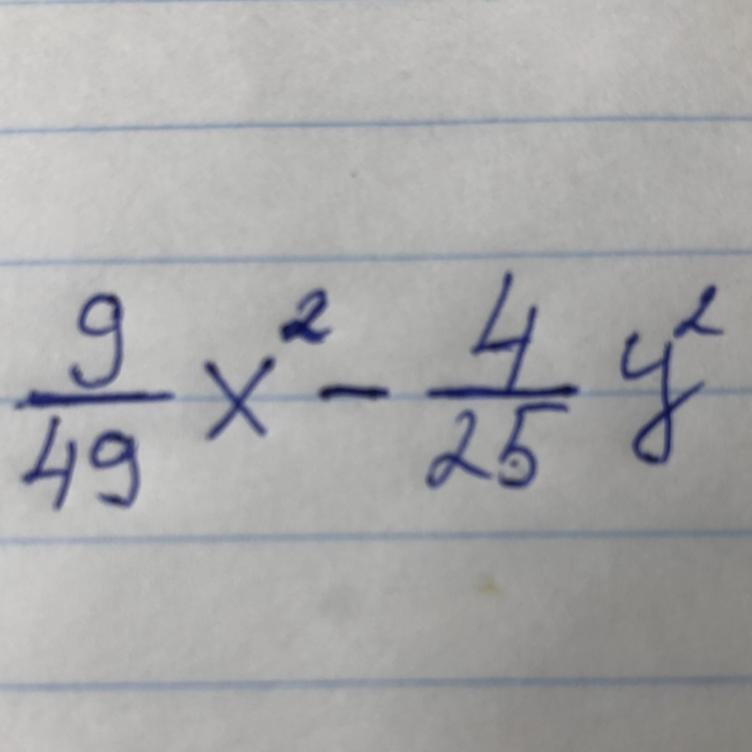 9/49 x² - 4/25 y²